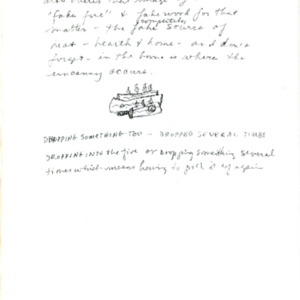 "fake fire" & fake wood for that
matter - the fake source of
heat - hearth & home - and don't
forget - in the home is where the
uncanny occurs.
DROPPING SOMETHING TOO - DROPPED SEVERAL TIMES
DROPPING INTO the fire or dropping something several
times which means having to pick it up again